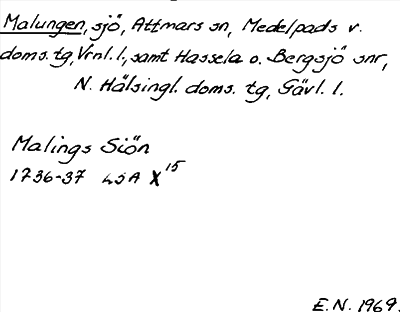 Malungen, sjö, Attmars sn, Medelpads v.
doms. tg, Vrnl. l., samt Hassela o. Bergsjö snr,
N. Hälsingl. doms. tg, Gävl. l.
Malings Siön
1736-37 LSA X 15
E.N. 1969.